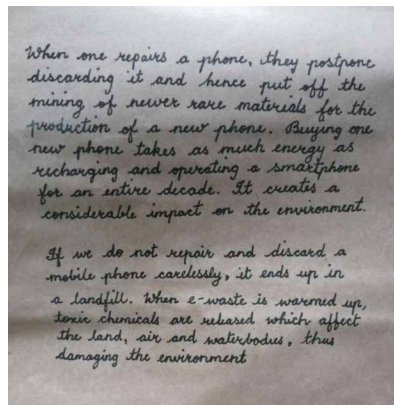 When one repairs a phone, they postpone
discarding it and hence put off the
mining of newer rare materials for the
production of a new phone. Buying one
new phone takes as much energy as
recharging and operating a smartphone
for an entire decade. It creates a
considerable impact on the environment.
If we do not repair and discard a
mobile phone carelessly, it ends up in
a landfill. When e-waste is warmed up,
toxic chemicals are released which affect
the land, air and waterbodies, thus
damaging the environment